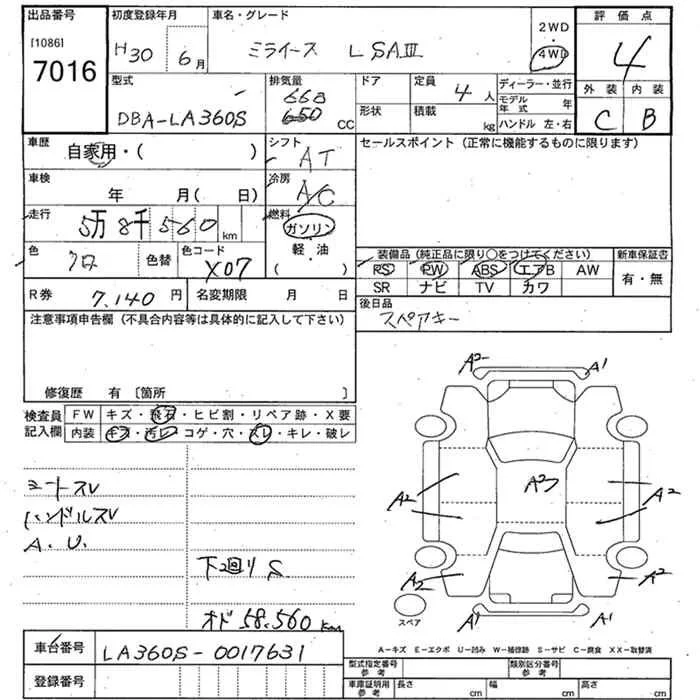 出品番号
[1086]
7016
初度登録年月
H30 6月
車名・グレード
ミライース L SAⅢ
2WD
・
4WD
評価点
4
型式
DBA-LA360S
排気量
660
650 CC
ドア
形状
定員
4人
積載
kg
ディーラー・並行
モデル年式 年
ハンドル 左・右
外装 内装
C B
車歴
自家用・( )
シフト
AT
セールスポイント (正常に機能するものに限ります)
車検
年 月( 日)
冷房
A/C
走行
5万8千560km
燃料
ガソリン
・
軽油
( )
色
クロ
色替
色コード
X07
装備品 (純正品に限り○をつけてください) 新車保証書
PS PW ABS エアB AW 有・無
SR ナビ TV カワ
R券
7.140円
名変期限 月 日
後日品
スペアキー
注意事項申告欄 (不具合内容等は具体的に記入して下さい)
修復歴 有〔箇所 〕
検査員
記入欄
FW キズ・飛石・ヒビ割・リペア跡・X要
内装 キズ・汚レ・コゲ・穴・スレ・キレ・破レ
シートスレ
ハンドルスレ
A.U.
下回りS
オド 58.560km
A2 A1
A2
A2 A2
A2 A2
A1 A1
スペア
A−キズ E−エクボ U−凹み W−補修跡 S−サビ C−腐食 XX−取替済
車台番号
LA360S-0017631
登録番号
型式指定番号
参考
類別区分番号
参考
車庫証明用
参考
長さ cm 幅 cm 高さ cm